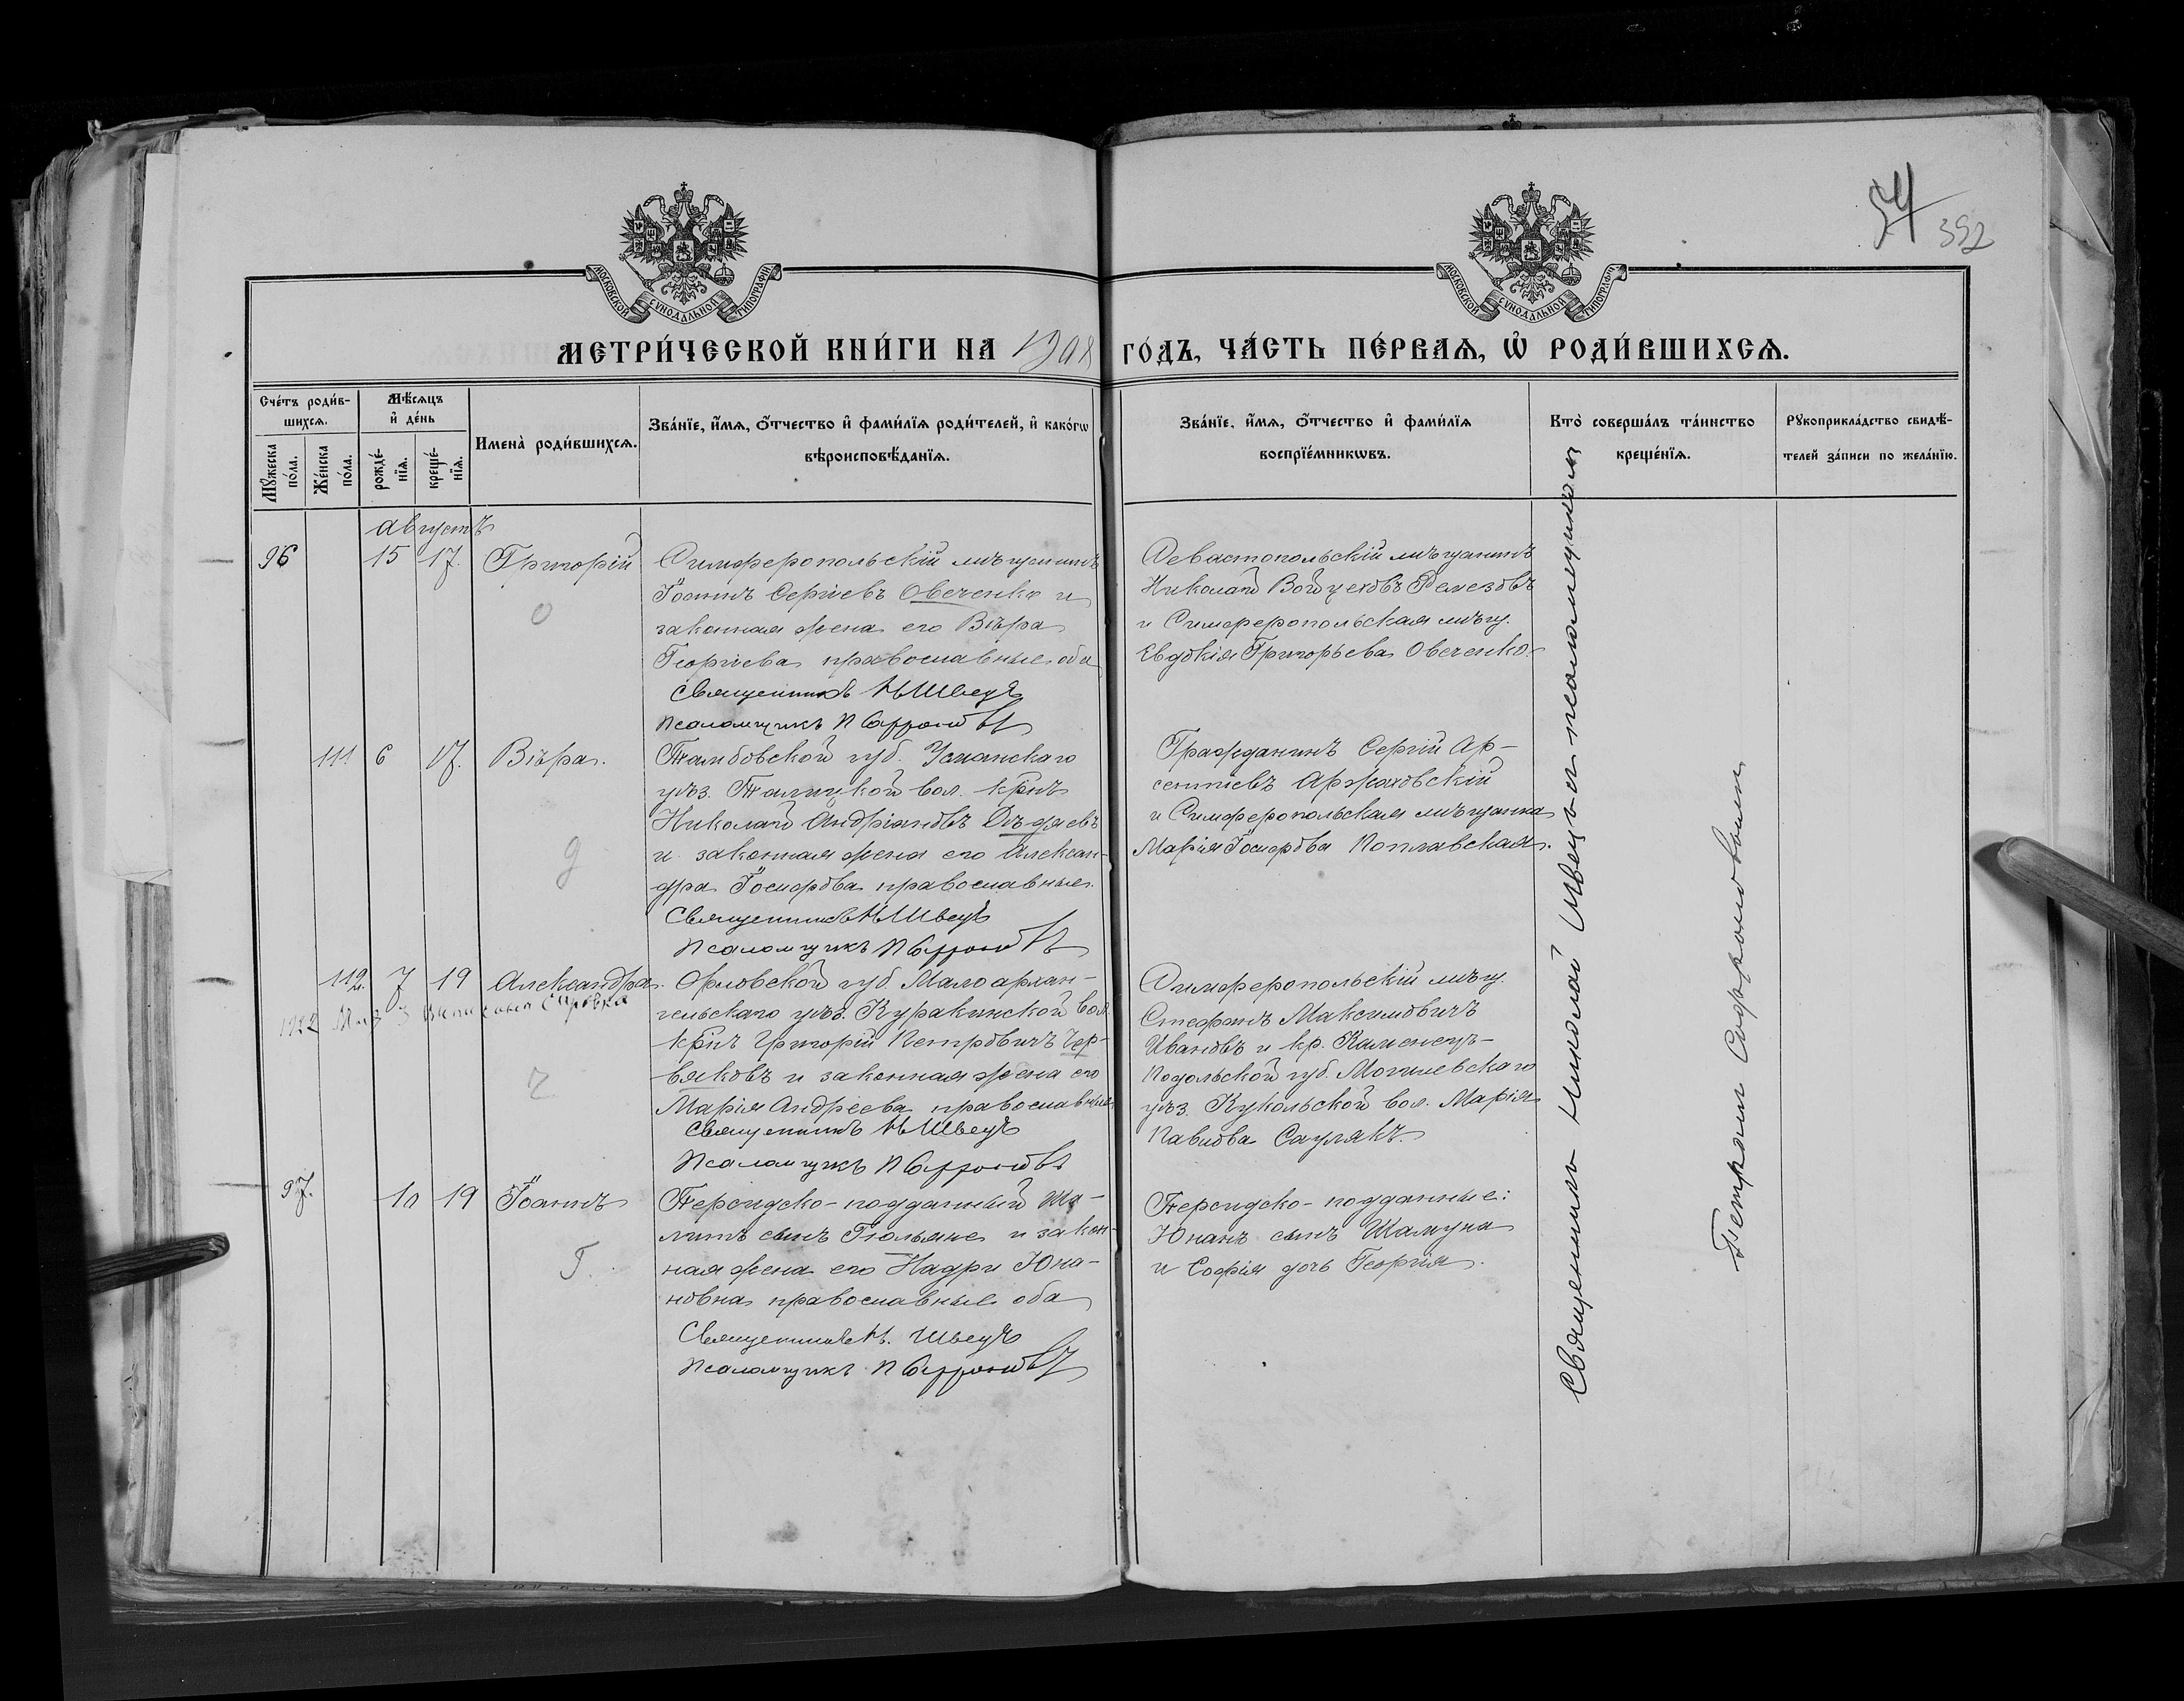 54
392
МОСКОВСКОЙ СУНОДАЛЬНОЙ ТИПОГРАФІИ
МОСКОВСКОЙ СУНОДАЛЬНОЙ ТИПОГРАФІИ
МЕТРИ́ЧЕСКОЙ КНИ́ГИ НА 1908 ГО́ДЪ, ЧА́СТЬ ПЕ́РВАѦ, Ѡ҆ РОДИ́ВШИХСѦ.
Сче́тъ роди́вшихсѧ.
Мꙋ́жеска по́ла.
Же́нска по́ла.
Мѣ́сѧцъ и҆ де́нь
рожде́нїѧ.
креще́нїѧ.
Имена̀ роди́вшихсѧ.
Зва́нїе, и҆́мѧ, ѻ҆́тчество и҆ фами́лїѧ роди́телей, и҆ како́гѡ вѣроисповѣ́данїѧ.
Зва́нїе, и҆́мѧ, ѻ҆́тчество и҆ фами́лїѧ воспрїе́мникѡвъ.
Кто̀ соверша́лъ та́инство креще́нїѧ.
Рꙋкоприкла́дство свидѣ́телей за́писи по жела́нїю.
Августъ
96 15 17. Григорій
Симферопольскій мѣщанинъ
Іоаннъ Сергіевъ Овеченко и
законная жена его Вѣра
Георгіева православные оба
Священникъ Н Швецъ
Псаломщикъ П Софроновъ
Севастопольскій мѣщанинъ
Николай Войцеховъ Ремезовъ
и Симферопольская мѣщ.
Евдокія Григорьева Овеченко.
О
111 6 17. Вѣра.
Тамбовской губ. Усманскаго
уѣз. Талицкой вол. кр̃нъ
Николай Андріановъ Дѣдяевъ
и законная жена его Алексан-
дра Іосифова православные.
Священникъ Н Швецъ
Псаломщикъ П Софроновъ
Гражданинъ Сергій Ар-
сентіевъ Аржаховскій
и Симферопольская мѣщанка
Марія Іосифова Поплавская.
Д
112. 7 19 Александра.
1922 Выписана справка
Орловской губ. Малоархан-
гельскаго уѣз. Куракинской вол.
кр̃нъ Григорій Петровичъ Чер-
вяковъ и законная жена его
Марія Андреева православные
Священникъ Н Швецъ
Псаломщикъ П Софроновъ
Симферопольскій мѣщ.
Стефанъ Максимовичъ
Ивановъ и кр. Каменецъ-
Подольской губ. Могилевскаго
уѣз. Кукольской вол. Марія
Павлова Сауляк.
Ч
97. 10 19 Іоаннъ
Персидско-подданный Ша-
литъ сынъ Гюльяне и закон-
ная жена его Надри Юна-
новна православные оба
Священникъ Н. Швецъ
Псаломщикъ П Софроновъ
Персидско-подданные:
Юнанъ сынъ Шамуна
и Софія дочь Георгія.
Г.
Священникъ Николай Швецъ и псаломщикомъ
Петромъ Софроновымъ